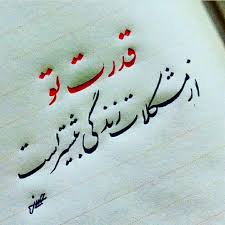 قدرت تو
از مشکلات زندگی بیشتر است